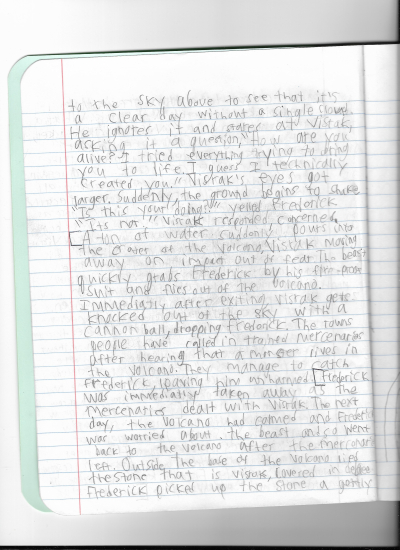 to the sky above to see that it's
a clear day without a single cloud.
He ignores it and stares at Visrak,
asking it a question, "How are you
alive? I tried everything trying to bring
you to life. I guess I technically
created you." Visrak's eyes got
larger. Suddenly, the ground begins to shake
"Is this your doing?!" yelled Frederick
"Its not," Visrak responded, concerned.
A ton of water suddenly pours into
the crater of the volcano, Visrak moving
away on impact out of fear. The beast
quickly grabs Frederick by his fire-proof
suit and flies out of the volcano.
Immediatly after exiting, Visrak gets
knocked out of the sky with a
cannon ball, dropping Frederick. The towns
people have called in trained mercenaries
after hearing that a monster lives in
the volcano. They manage to catch
Frederick, leaving him unharmed. Frederick
was immediatly taken away as the
mercenaries dealt with Visrak. The next
day, the volcano had calmed and Frederick
was worried about the beast and so went
back to the volcano after the
left. Outside the base of the volcano
the stone that is Visrak, covered in
Frederick picked up the stone a